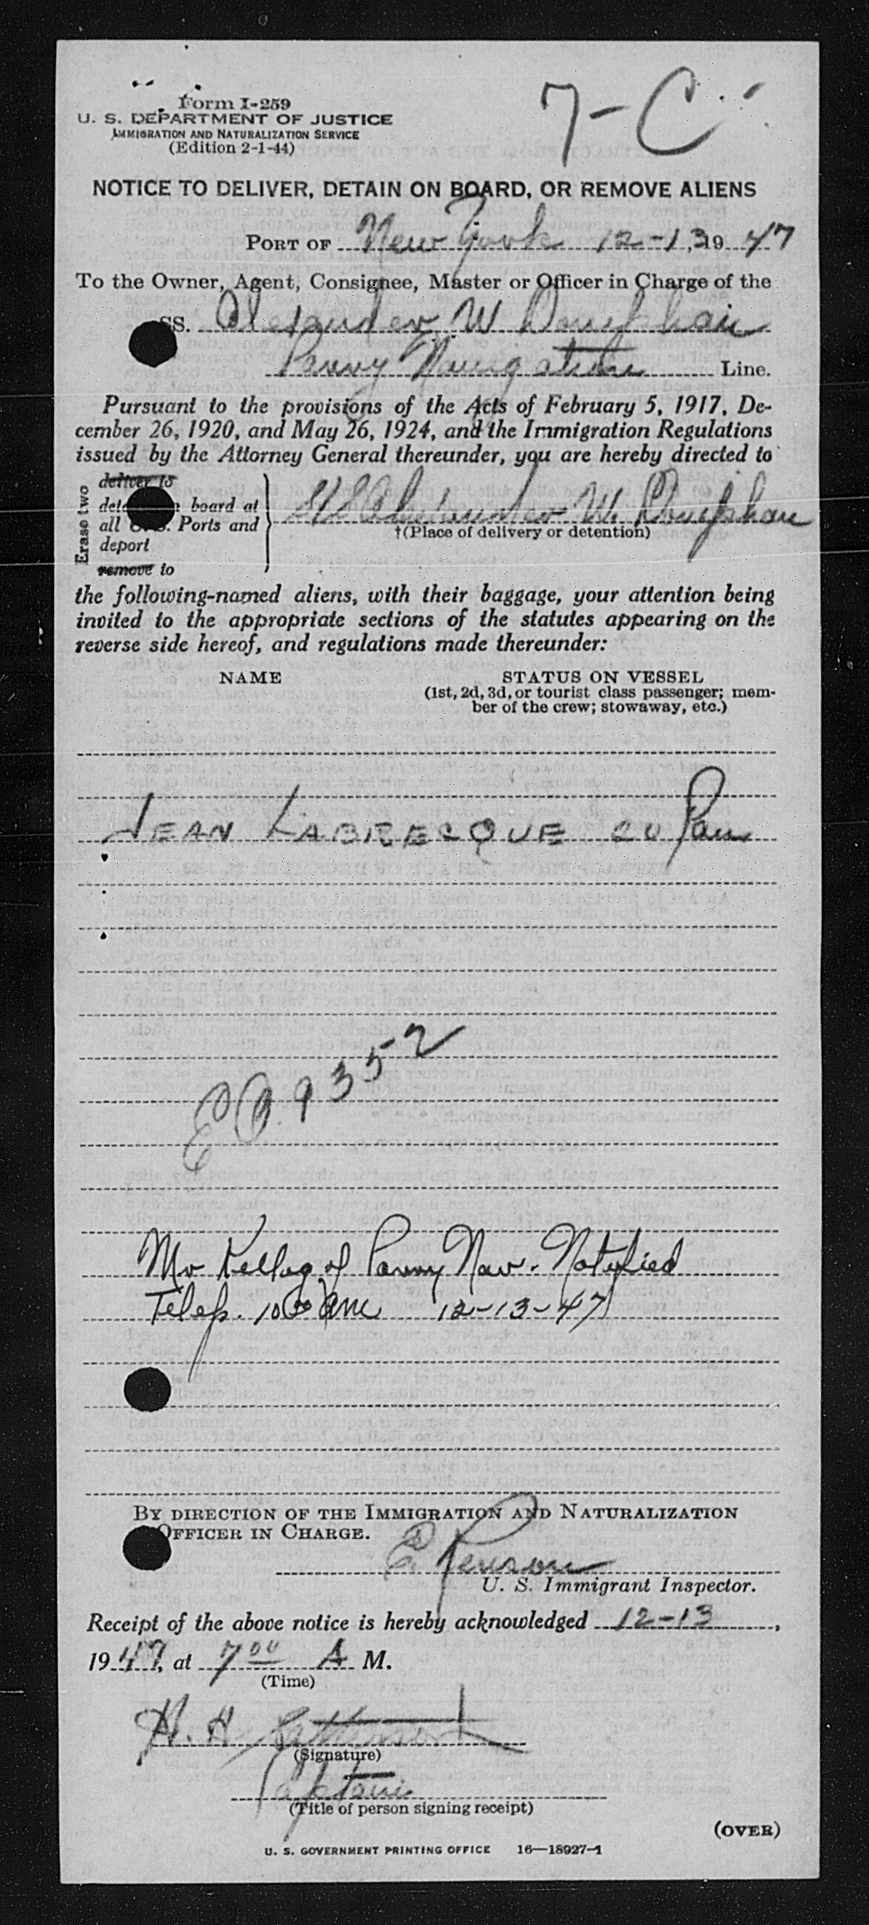 7-C
Form I-259
U. S. DEPARTMENT OF JUSTICE
IMMIGRATION AND NATURALIZATION SERVICE
(Edition 2-1-44)
NOTICE TO DELIVER, DETAIN ON BOARD, OR REMOVE ALIENS
PORT OF New York 12-13, 19 47
To the Owner, Agent, Consignee, Master or Officer in Charge of the
SS. Alexander W Doniphan
Navigation Line.
Pursuant to the provisions of the Acts of February 5, 1917, De-
cember 26, 1920, and May 26, 1924, and the Immigration Regulations
issued by the Attorney General thereunder, you are hereby directed to
Erase two
deliver to
board at
all Ports and
deport
remove to
SS Alexander W. Doniphan
†(Place of delivery or detention)
the following-named aliens, with their baggage, your attention being
invited to the appropriate sections of the statutes appearing on the
reverse side hereof, and regulations made thereunder:
NAME STATUS ON VESSEL
(1st, 2d, 3d, or tourist class passenger; mem-
ber of the crew; stowaway, etc.)
JEAN LABRECQUE
9352
Mr Kellog of Nav. Notified
Telep. 10 00 AM 12-13-47
BY DIRECTION OF THE IMMIGRATION AND NATURALIZATION
OFFICER IN CHARGE.
U. S. Immigrant Inspector.
Receipt of the above notice is hereby acknowledged 12-13,
19 47, at 7 00 A M.
(Time)
H. H
(Signature)
Captain
(Title of person signing receipt)
(OVER)
U. S. GOVERNMENT PRINTING OFFICE 16—18927-1